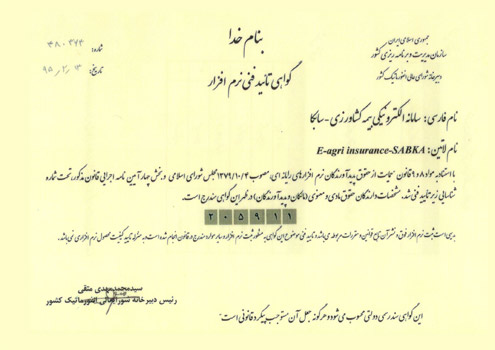 بنام خدا
جمهوری اسلامی ایران
سازمان مدیریت و برنامه ریزی کشور
دبیرخانه شورای عالی انفورماتیک کشور
شماره:
تاریخ: ۹۵/۲/۱۳
گواهی تائید فنی نرم افزار
نام فارسی: سامانه الکترونیکی بیمه کشاورزی - سابکا
نام لاتین: E-agri insurance-SABKA
با استناد به مواد ۸ و ۹ قانون حمایت از حقوق پدیدآورندگان نرم افزارهای رایانه ای، مصوب ۱۳۷۹/۱۰/۴ مجلس شورای اسلامی و بخش چهار آیین نامه اجرایی قانون مذکور، تحت شماره
شناسایی زیر تایید فنی شد، مشخصات دارندگان حقوق مادی و معنوی (مالکان و پدیدآورندگان) در ظهر این گواهی مندرج است.
۲۰۵۹۱۱
بدیهی است ثبت نرم افزار فوق و نشر آن تابع قوانین و مقررات مربوطه می باشد و تایید فنی موضوع این گواهی به منظور ثبت نرم افزار و سایر موارد مندرج در قانون انجام شده است و به منزله تایید کیفیت محصول نرم افزاری نمی باشد.
سیدمحمدمهدی متقی
رئیس دبیرخانه شورایعالی انفورماتیک کشور
این گواهی سندرسمی دولتی محسوب می شود و هرگونه جعل آن مستوجب پیگرد قانونی است.